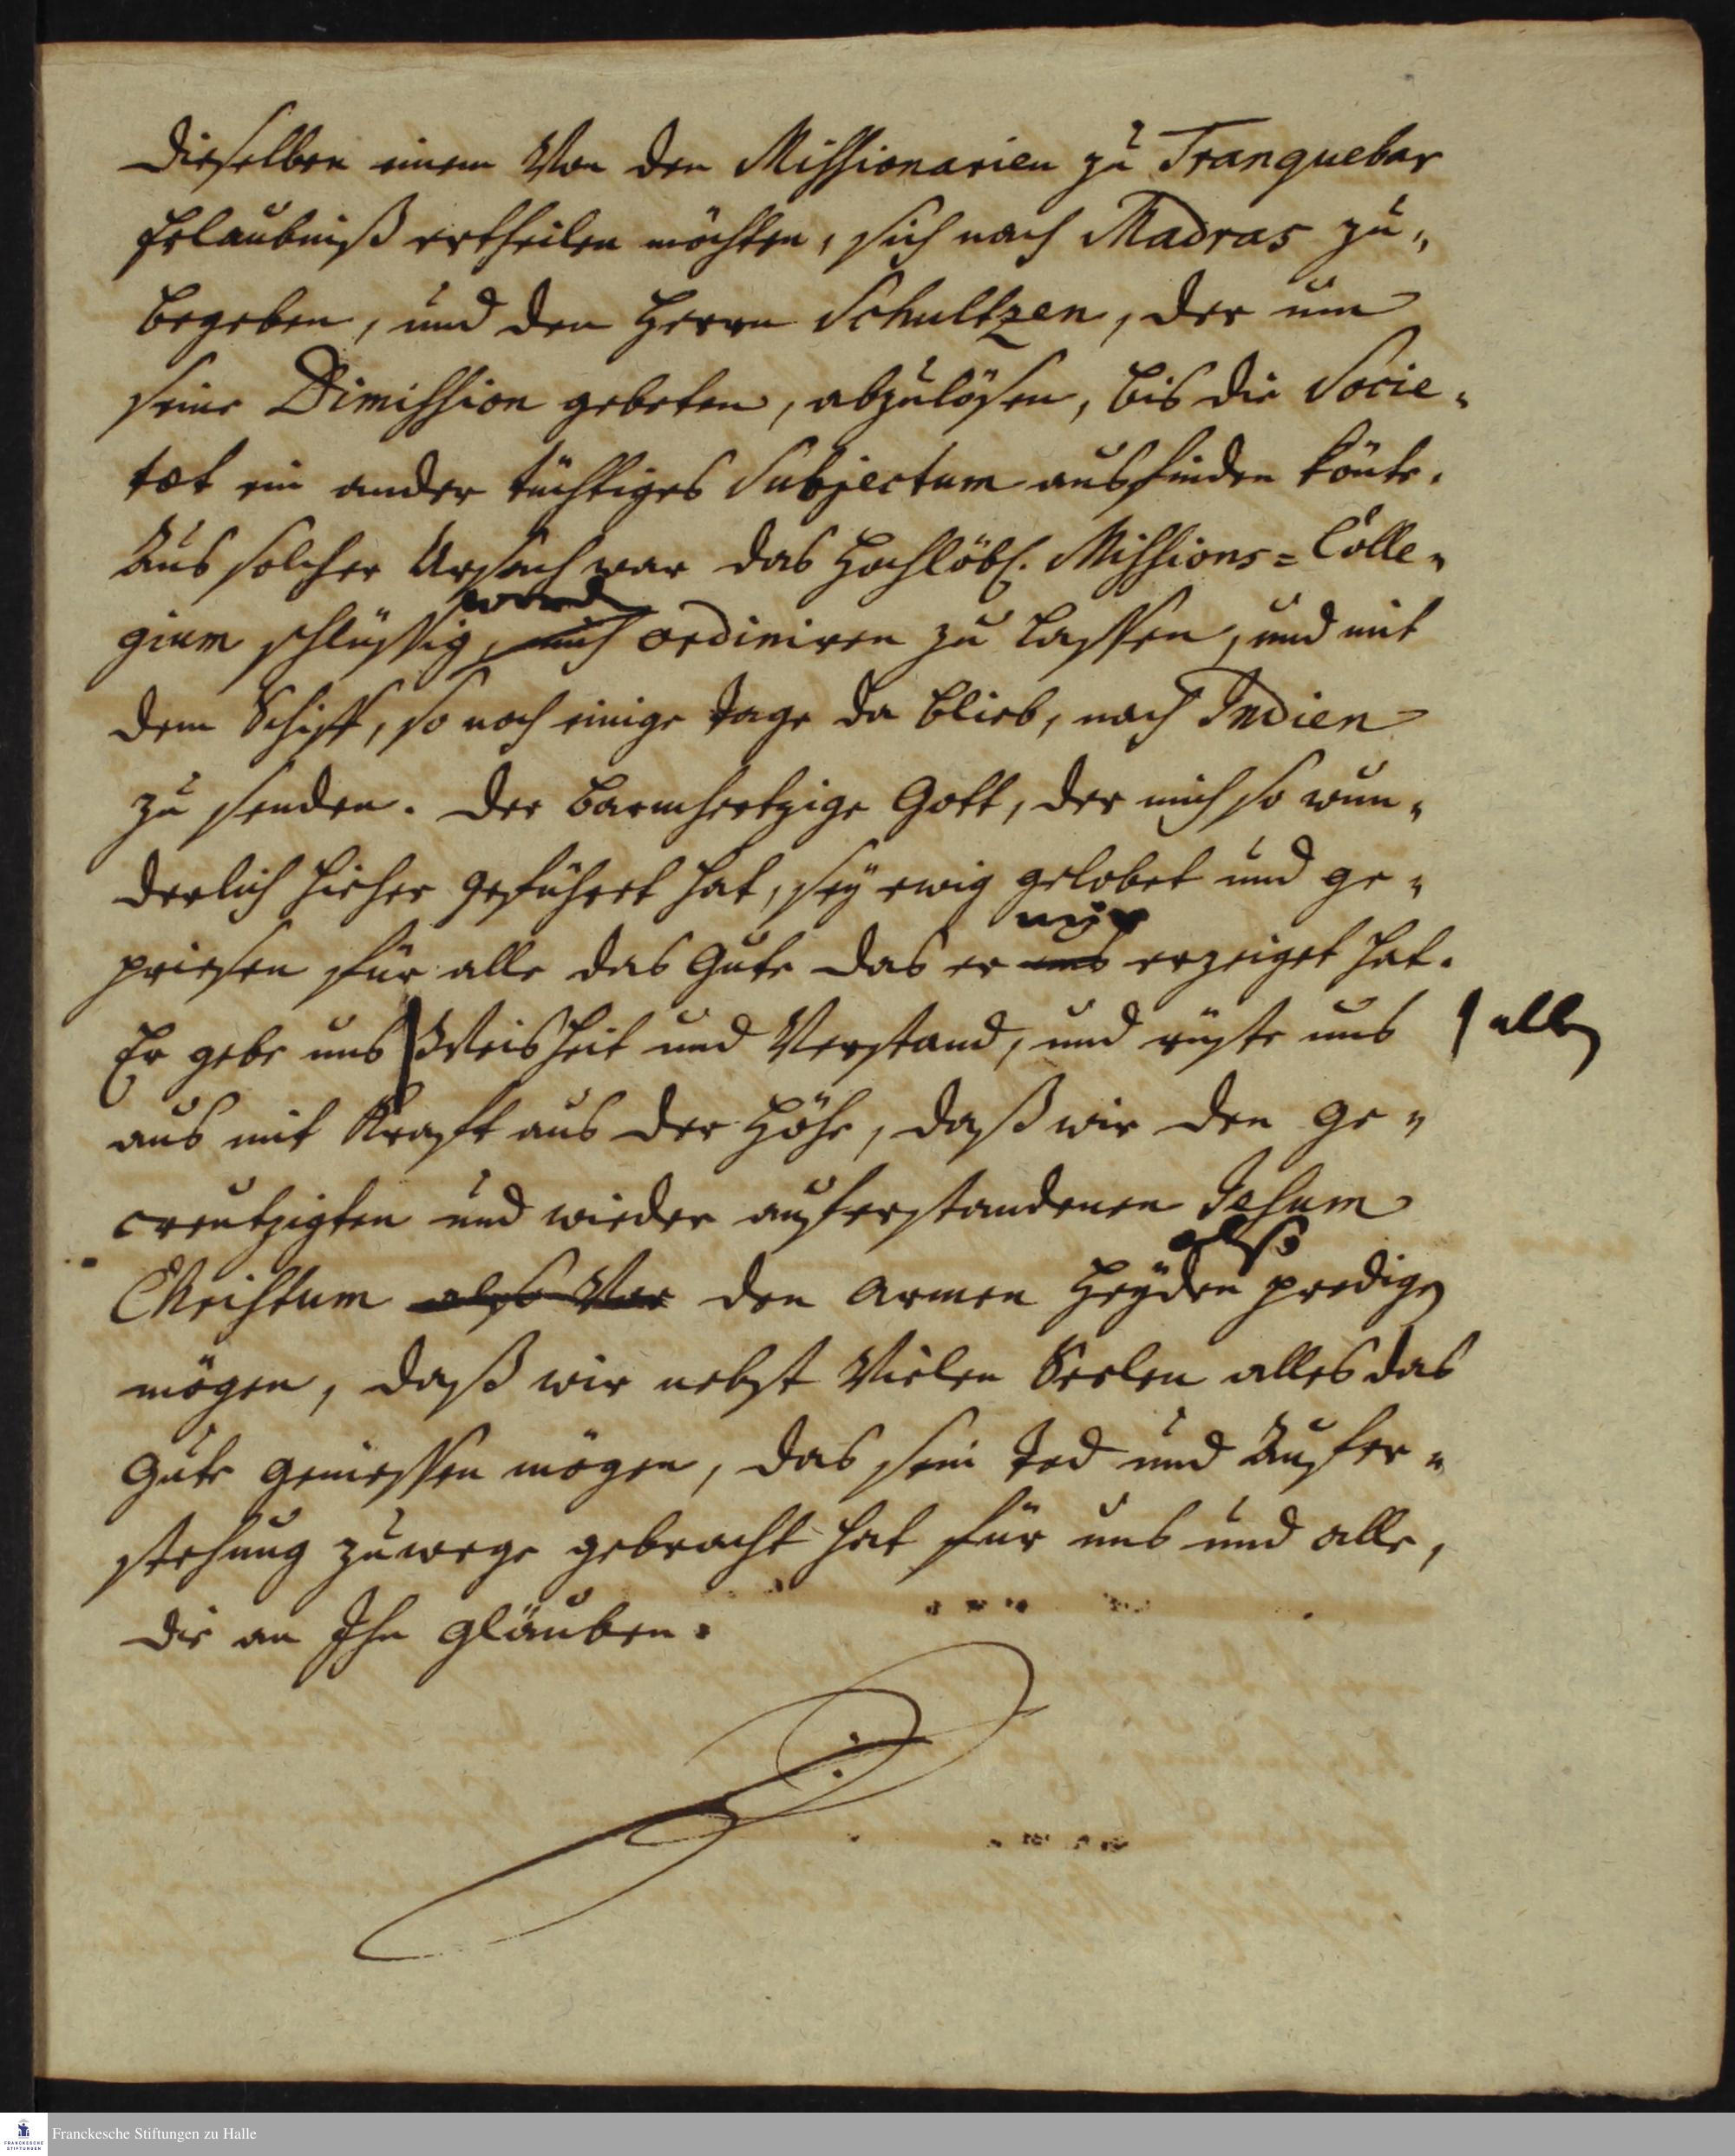 dieselben einem Von den Missionarien zu Tranquebar
Erlaubniß ertheilen möchten, sich nach Madras zu„
begeben, und den Herrn Schultzen, der um
seine Dimission gebeten, abzulösen, bis die Socie„
tæt ein ander tüchtiges Subjectum ausfinden könte.
Aus solcher Ursach war das Hochlöbl. Missions=Colle„
word
gium schlüssig, mich ordiniren zu lassen, und mit
dem Schiff, so noch einige Tage da blieb, nach Indien
zu senden. Der barmhertzige Gott, der mich so wun„
derlich hieher geführet hat, sey ewig gelobet und ge„
mir
priesen für alle das Gute das er uns erzeiget hat.
Er gebe uns Weisheit und Verstand, und rüste uns
allen
aus mit Krafft aus der Höhe, daß wir den Ge„
creutzigten und wieder auferstandenen Jesum
also
Christum also Vor den armen Heyden predigen
mögen, daß wir nebst Vielen Seelen alles das
Gute geniessen mögen, das sein Tod und Aufer„
stehung zuwege gebracht hat für uns und alle,
die an Ihn gläuben.
Franckesche Stiftungen zu Halle
FRANCKESCHE
STIFTUNGEN